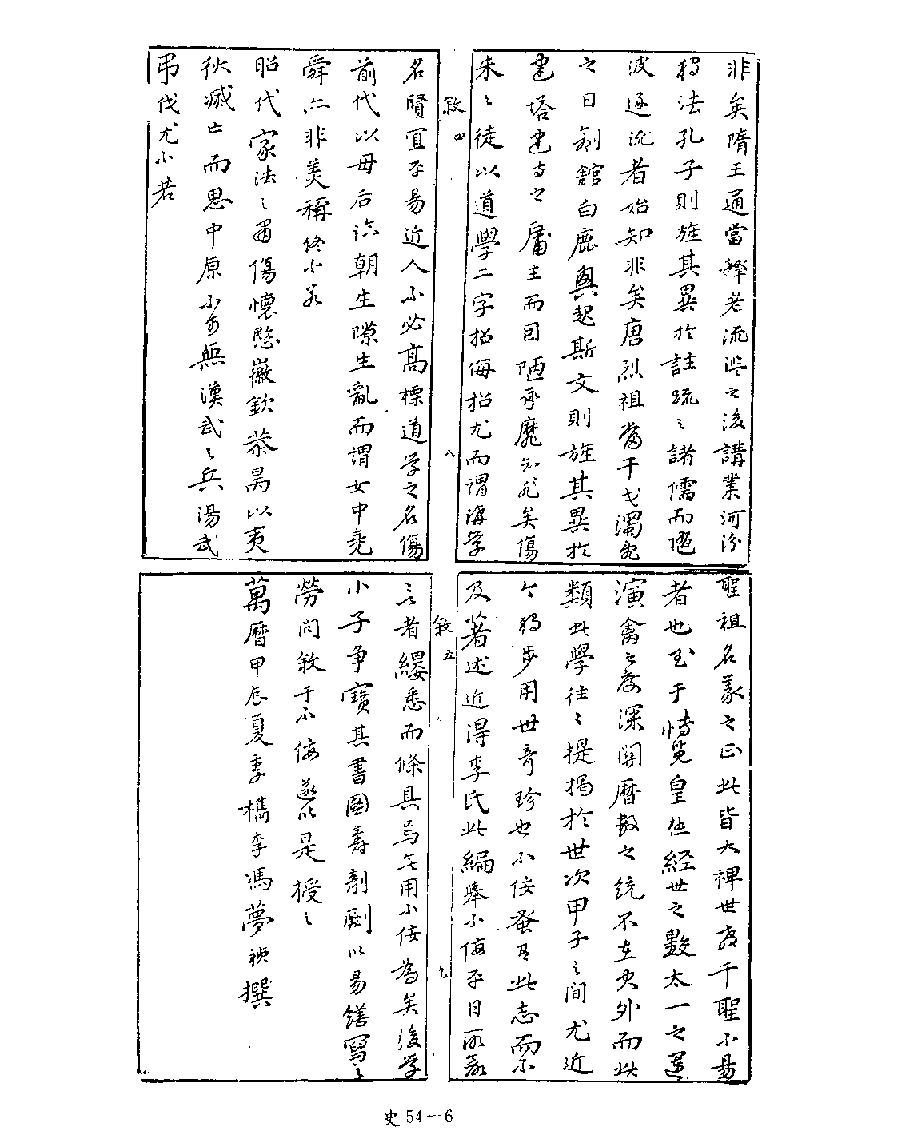 非矣隋王通當釋老流毖之後講業河汾
獨法孔子則旌其異於註疏之諸儒而隨
波逐流者始知非矣唐烈祖當干戈濁亂
之日剏館白鹿興起斯文則旌其異於
建塔建寺之庸主而因陋承靡知非矣傷
宋之徒以道學二字招侮招尤而謂講學
敘四
八
名賢宜平易近人不必高標道学之名傷
前代以母后臨朝生隙生亂而謂女中堯
舜亦非美稱終不若
昭代家法之嚴傷懷愍徽欽恭昺以夷
狄滅亡而思中原不可無漢武之兵湯武
弔伐尤不若
聖祖名義之正此皆大裨世教千聖不易
者也至于博覽皇極經世之數太一之運
演禽之妙深關曆數之統不在史外而此
類此學往往提揭於世次甲子之間尤近
今獨步用世奇珍也不佞蚤有此志而不
及著述近得李氏此編舉不佞平日所欲
敘五
九
言者縷悉而條具焉無用不佞為矣後学
小子爭寶其書圖壽剞劂以易繕寫之
勞問敘于不佞遂以是授之
萬曆甲辰夏季檇李馮夢禎撰
史 54—6